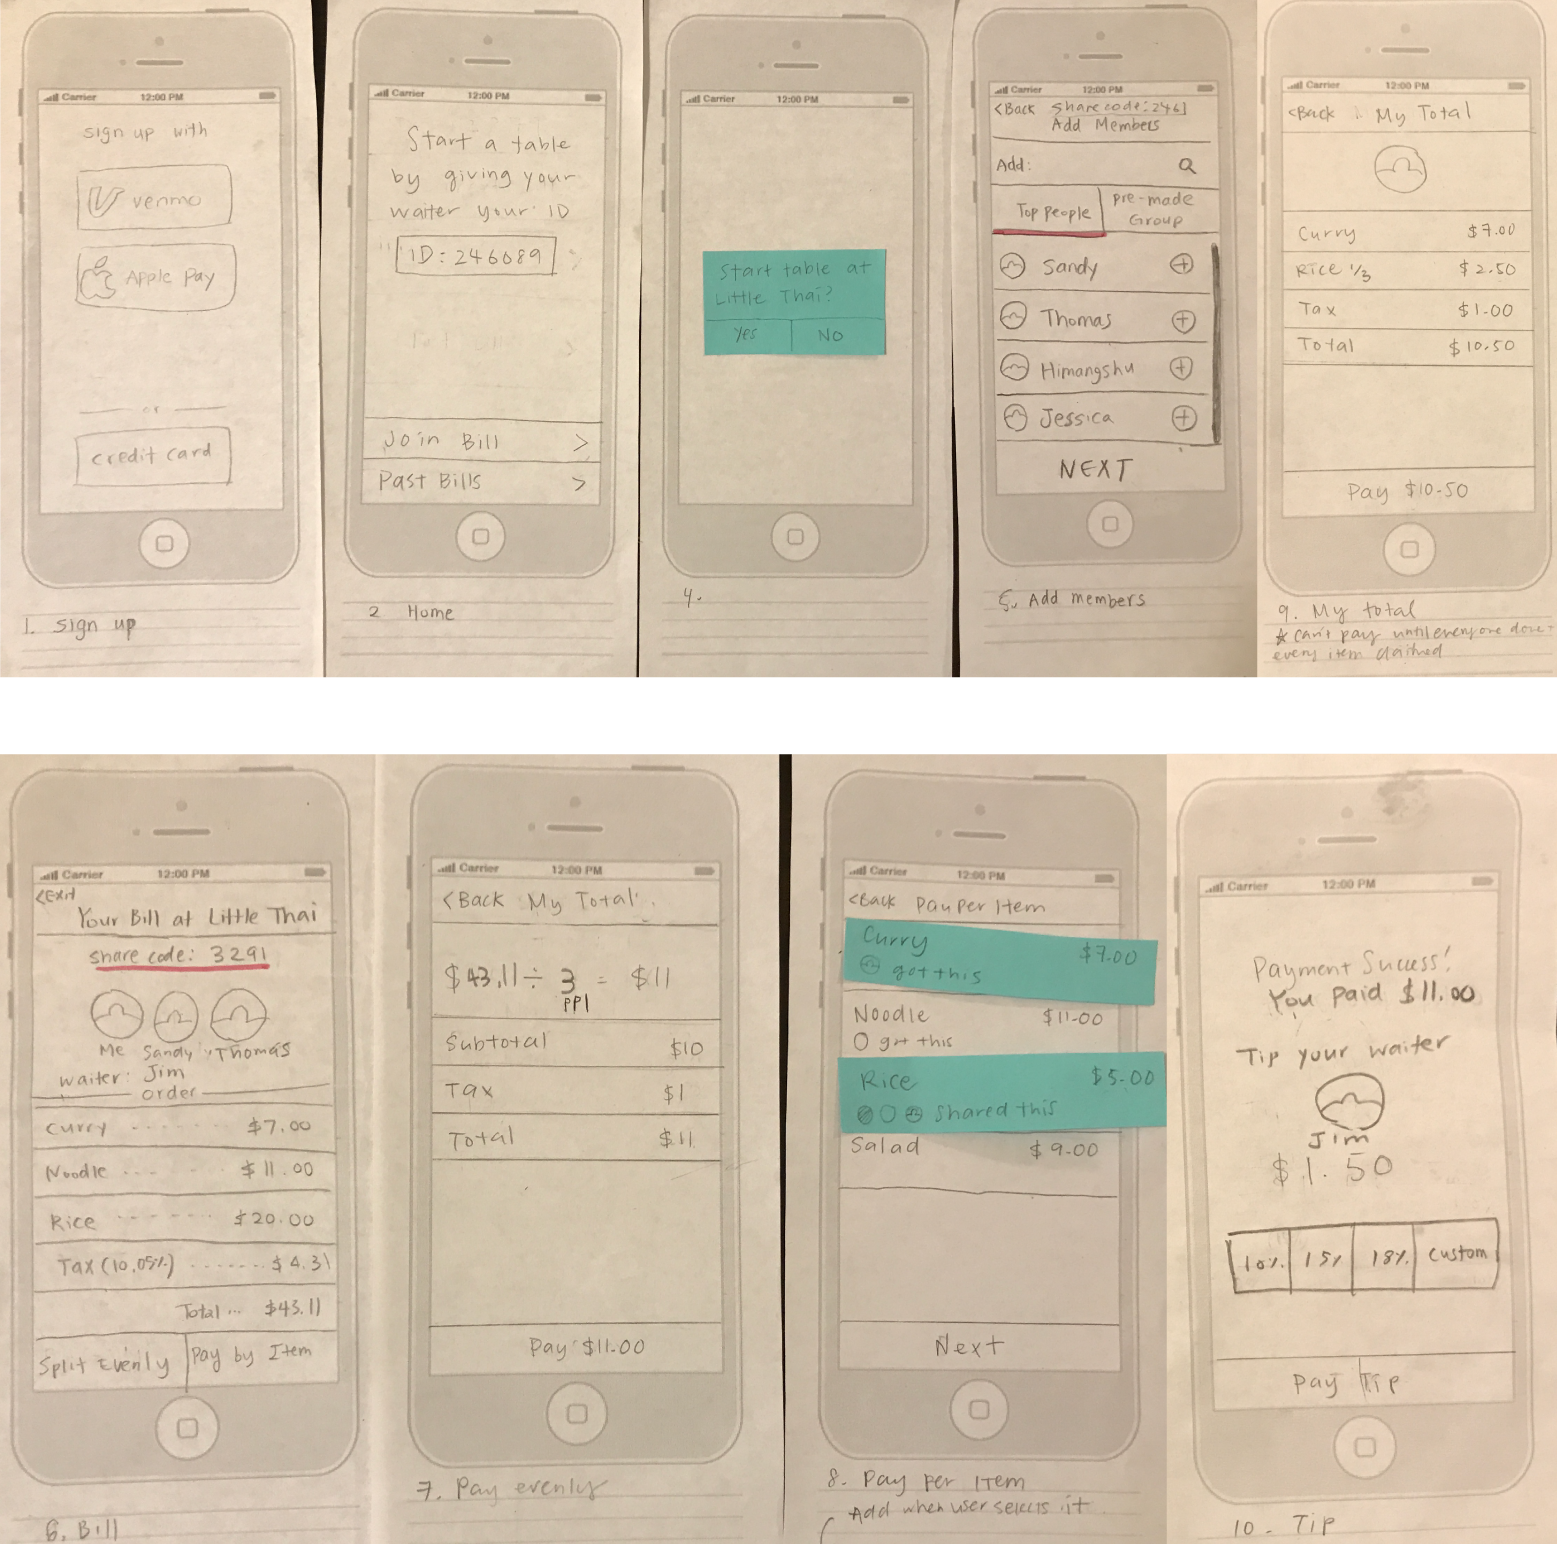 Carrier 12:00 PM
sign up with
venmo
Apple Pay
or
credit card
1. sign up
Carrier 12:00 PM
Start a table
by giving your
waiter your ID
ID: 246089
Join Bill >
Past Bills >
2 Home
Carrier 12:00 PM
Start table at
Little Thai?
Yes NO
4.
Carrier 12:00 PM
<Back share code: 2461
Add Members
Add:
Top People
pre-made
Group
Sandy +
Thomas +
Himangshu +
Jessica +
NEXT
5. Add members
Carrier 12:00 PM
<Back My Total
Curry $7.00
Rice 1/3 $2.50
Tax $1.00
Total $10.50
Pay $10.50
9. My total
* can't pay until everyone done +
every item claimed
Carrier 12:00 PM
<Exit
Your Bill at Little Thai
share code: 3291
Me Sandy Thomas
waiter: Jim
order
Curry $7.00
Noodle $11.00
Rice $20.00
Tax (10.05%) $4.31
Total... $43.11
Split Evenly Pay by Item
6. Bill
Carrier 12:00 PM
<Back My Total
$43.11 ÷ 3 = $11
PPl
Subtotal $10
Tax $1
Total $11
Pay $11.00
7. Pay evenly
Carrier 12:00 PM
<Back Pay Per Item
Curry $7.00
got this
Noodle $11.00
got this
Rice $5.00
shared this
Salad $9.00
Next
8. Pay Per Item
Add when user selects it
Carrier 12:00 PM
Payment Success!
You Paid $11.00
Tip your waiter
Jim
$1.50
10% 15% 18% custom
Pay Tip
10. Tip